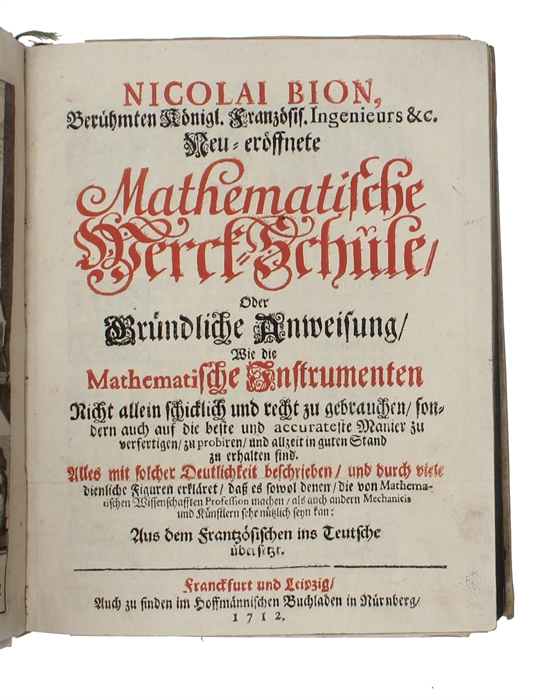 NICOLAI BION,
Berühmten Königl. Französis. Ingenieurs &c.
Neu-eröffnete
Mathematische
Werck-Schule/
Oder
Gründliche Anweisung/
Wie die
Mathematische Instrumenten
Nicht allein schicklich und recht zu gebrauchen/ son-
dern auch auf die beste und accurateste Manier zu
verfertigen/ zu probiren/ und allzeit in guten Stand
zu erhalten sind.
Alles mit solcher Deutlichkeit beschrieben/ und durch viele
dienliche Figuren erkläret/ daß es sowol denen/ die von Mathema-
tischen Wissenschafften Profession machen/ als auch andern Mechanicis
und Künstlern sehr nützlich seyn kan:
Aus dem Frantzösischen ins Teutsche
übersetzt.
Franckfurt und Leipzig/
Auch zu finden im Hoffmännischen Buchladen in Nürnberg/
1712.